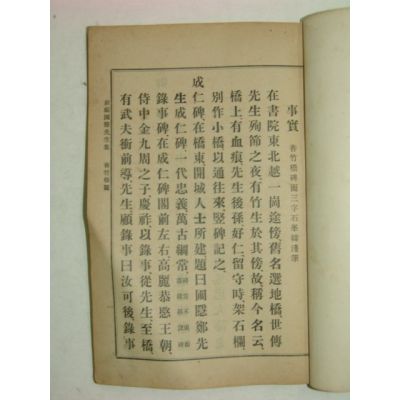 事實 善竹橋碑面三字石峯韓濩筆
在書院東北越一崗途傍舊名選地橋世傳
先生殉節之夜有竹生於其傍故稱今名云
橋上有血痕先生後孫好仁留守時架石欄
別作小橋以通往來竪碑記之
成仁碑在橋東開城人士所建題曰圃隱鄭先
生成仁碑一代忠義萬古綱常
錄事碑在成仁碑閣前左右高麗恭愍王朝
侍中金九周之子慶祚以錄事從先生至橋
有武夫衝前導先生顧錄事曰汝可後錄事
圃隱先生集 善竹橋